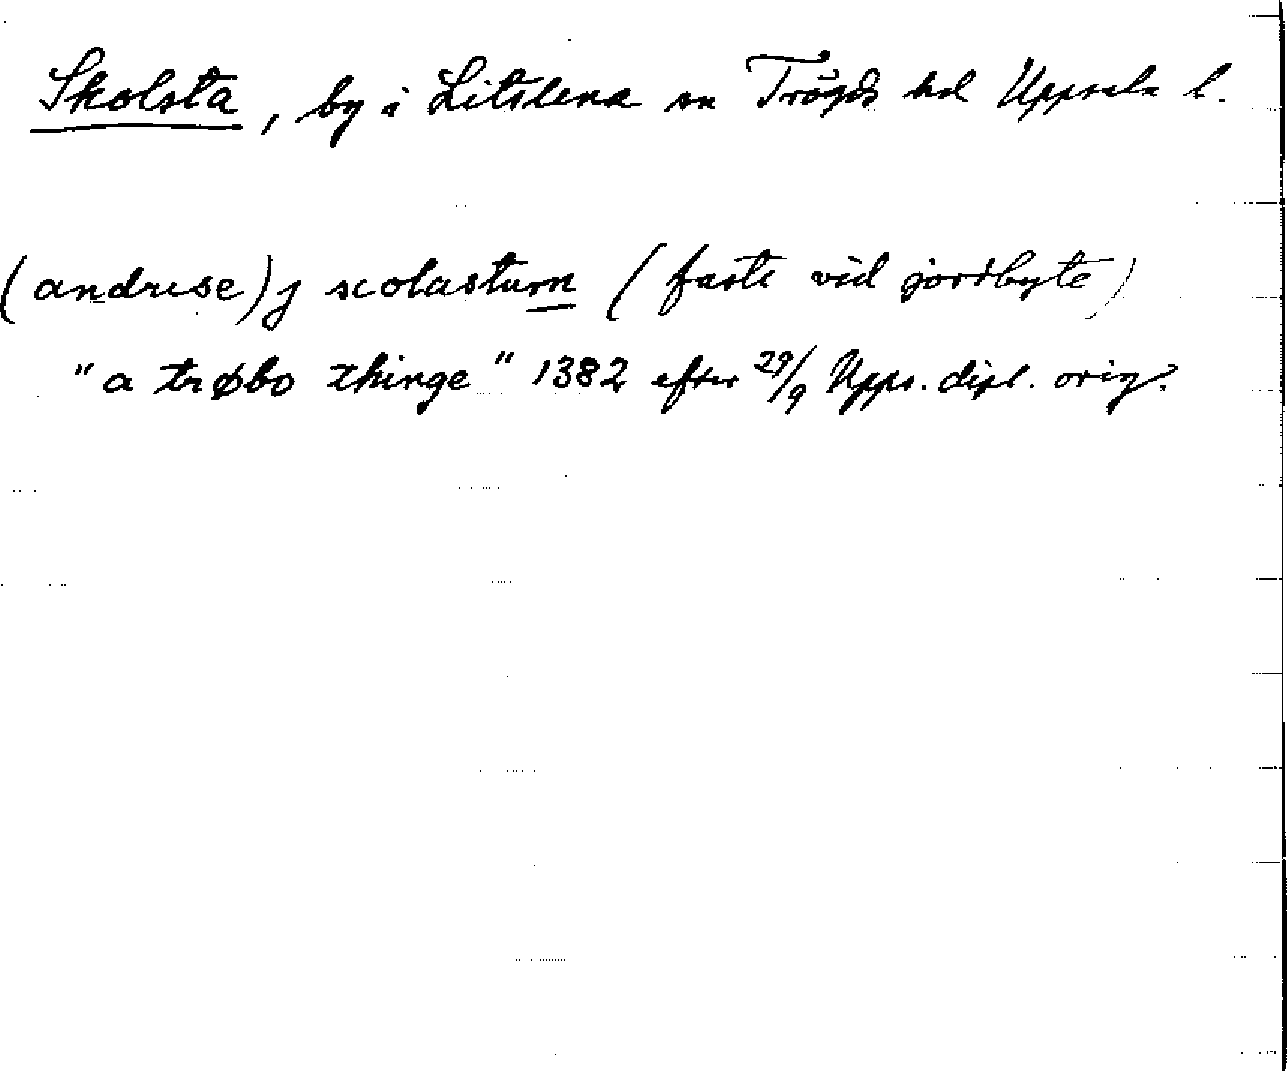 Skolsta, by i Litslena sn Trögds hd Uppsala l.
(andrese) j scolastum (faste vid jordbyte)
"a trøbo thinge" 1382 efter 29/9 Upps. dipl. orig.